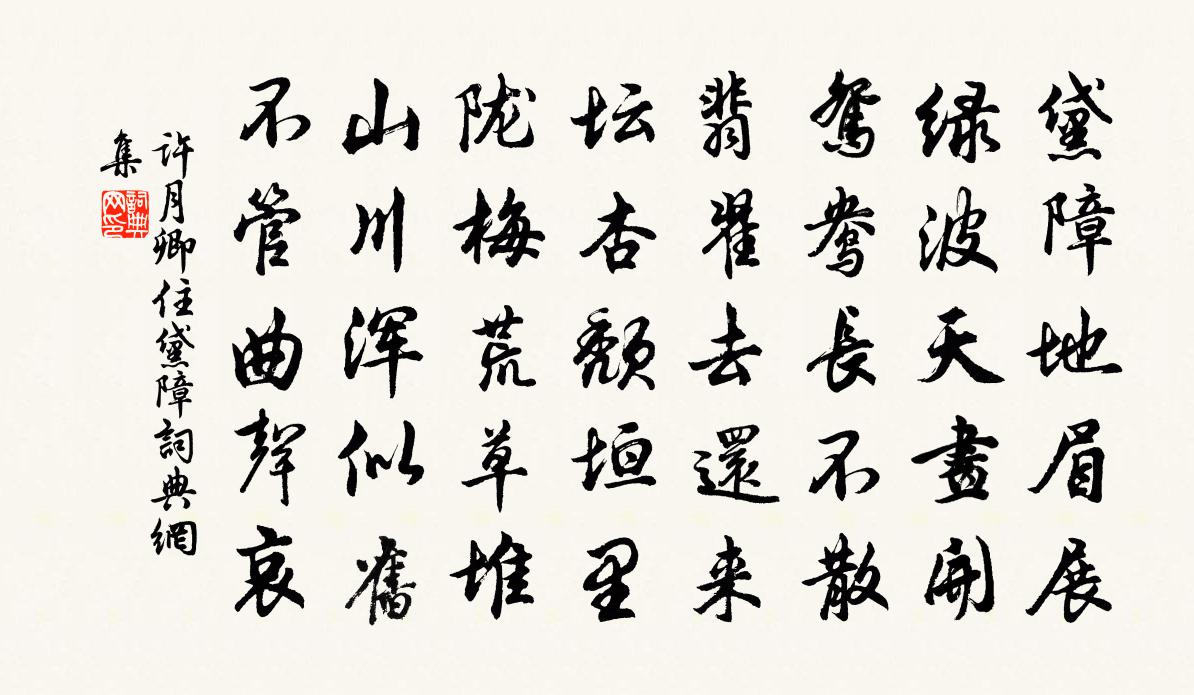 黛障地眉展
绿波天畫開
鴛鴦長不散
翡翠去還来
坛杏颓垣里
陇梅荒草堆
山川浑似舊
不管曲聲哀
許月卿住黛障詞典網
集
詞典
网印